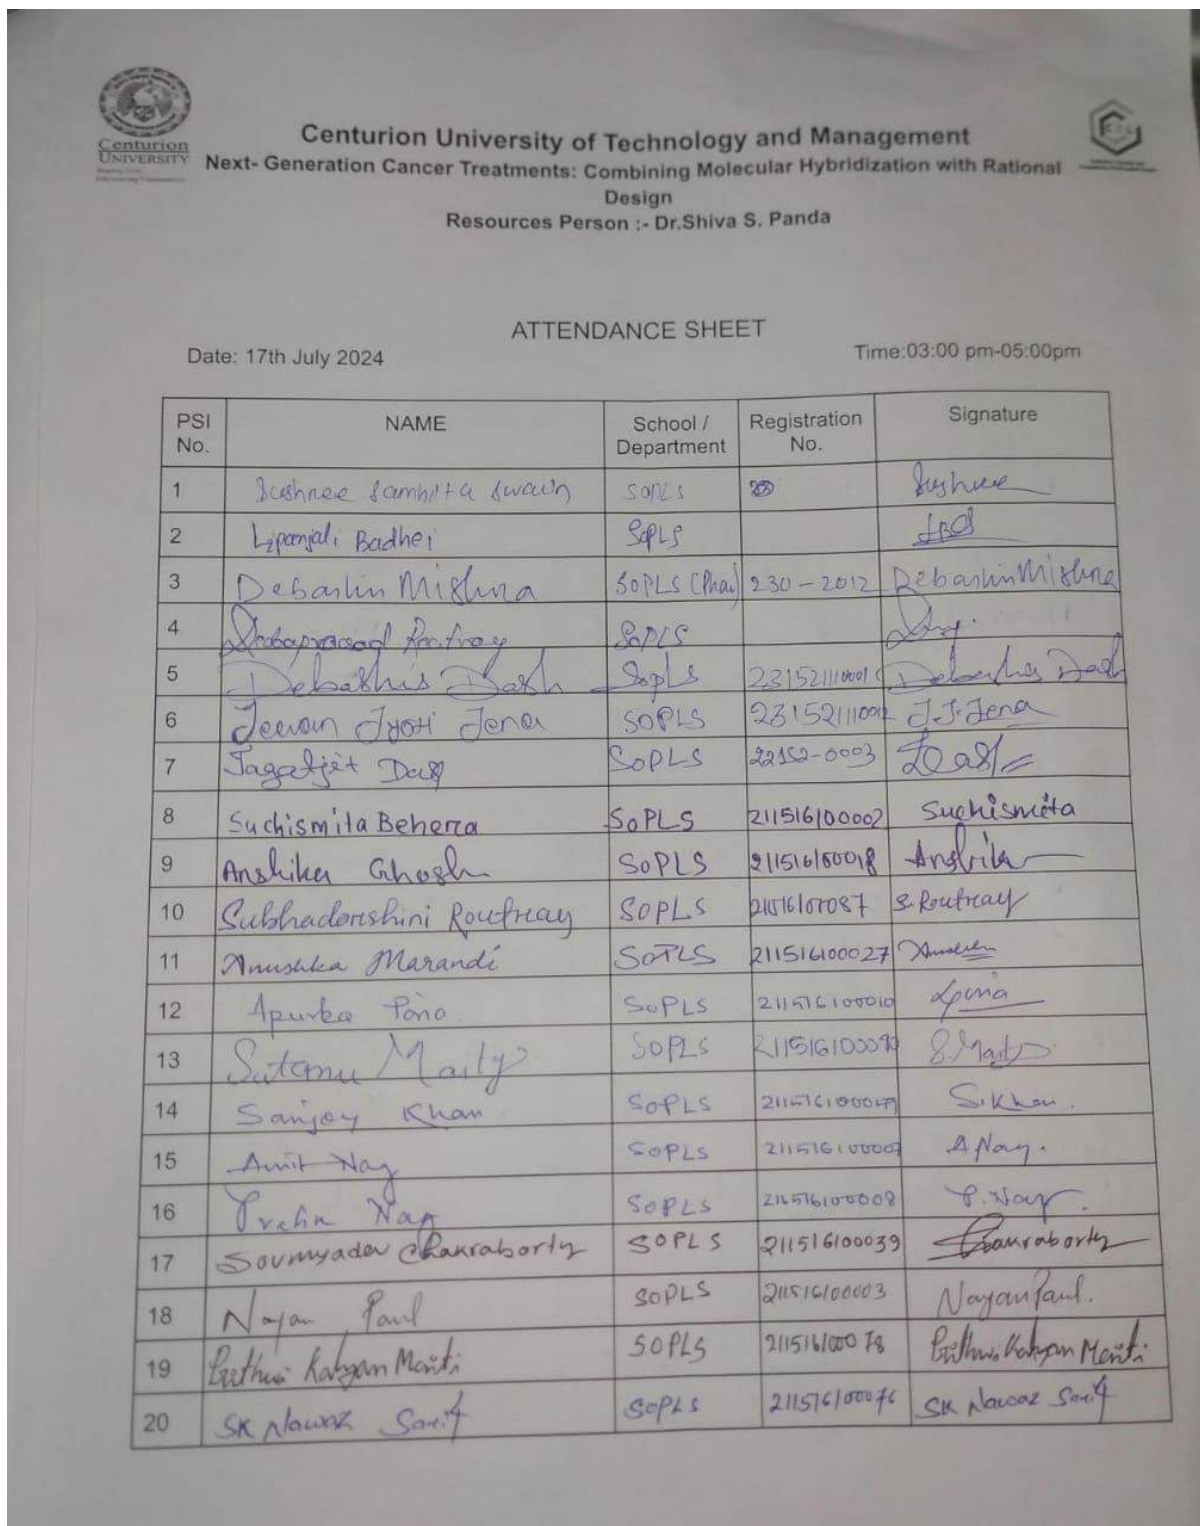 Centurion
UNIVERSITY
Centurion University of Technology and Management
Next- Generation Cancer Treatments: Combining Molecular Hybridization with Rational
Design
Resources Person :- Dr.Shiva S. Panda
ATTENDANCE SHEET
Date: 17th July 2024 Time:03:00 pm-05:00pm
PSI No. NAME School / Department Registration No. Signature
1 Sushree Samhita Swain SOPLS Sushree
2 Lipanjali Badhei SoPLS
3 Debashin Mishra SoPLS (Pha) 230-2012 Debashin Mishra
4 Routray SoPLS
5 Debashis Dash SopLS Debashis Dash
6 Jeevan Jyoti Jena SOPLS J.J.Jena
7 Jagatjit Das SoPLS 22152-0003 Das
8 Suchismita Behera SoPLS 211516100002 Suchismita
9 Anshika Ghosh SOPLS 211516100018 Anshika
10 Subhadarshini Routray SOPLS S.Routray
11 Anushka Marandi SOPLS 211516100027
12 Apurba SoPLS 211516100010
13 Maity SOPLS S.Maity
14 Sanjoy Khan SOPLS S.Khan.
15 Amit Nag SOPLS A Nag.
16 Nag SOPLS 211516100008 P. Nag.
17 Soumyadev Chakraborty SOPLS 211516100039 Chakraborty
18 Nayan Paul SOPLS 211516100003 Nayan Paul.
19 Prithwi Kalyan Maiti SOPLS 211516100078 Prithwi Kalyan Maiti
20 SK Nawaz Sarif SOPLS 211516100076 SK Nawaz Sarif